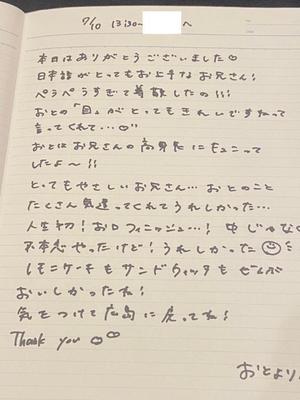 7/10 13:30~ へ
本日はありがとうございました♡
日本語がとってもお上手なお兄さん!
ペラペラすぎて尊敬したの!!!
おとの「目」がとってもきれいですねって
言ってくれて…♡"
おとはお兄さんの高身長にキュンって
したよ〜!!
とってもやさしいお兄さん… おとのこと
たくさん気遣ってくれてうれしかった…
人生初!お口フィニッシュ…! 中じゃなく
不本意やったけど! うれしかった
レモンケーキもサンドウィッチもぜんぶ
おいしかったね!
気をつけて広島に戻ってね!
Thank you
おとより